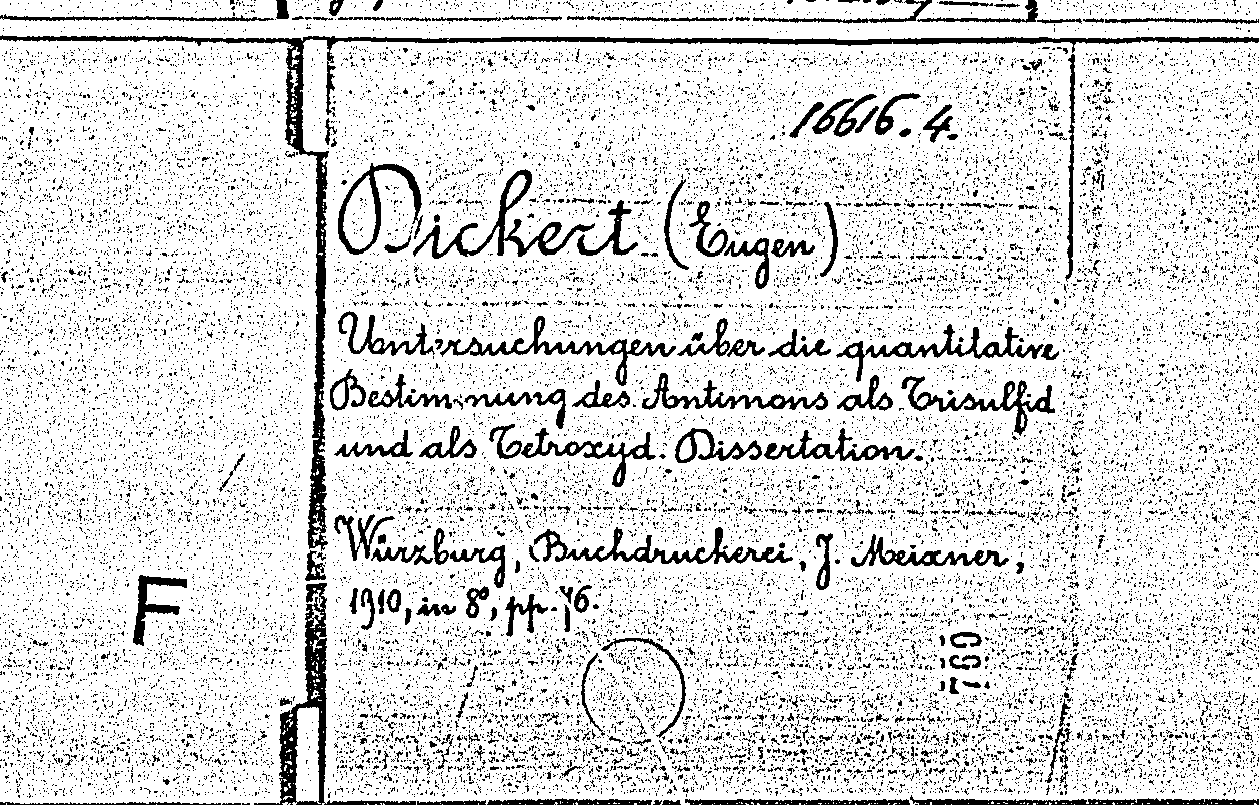 16616. 4.
Dickert (Eugen)
Untersuchungen über die quantitative
Bestimmung des Antimons als Trisulfid
und als Tetroxyd. Dissertation.
Würzburg, Buchdruckerei, J. Meixner,
1910, in 8°, pp. 76.
F
760